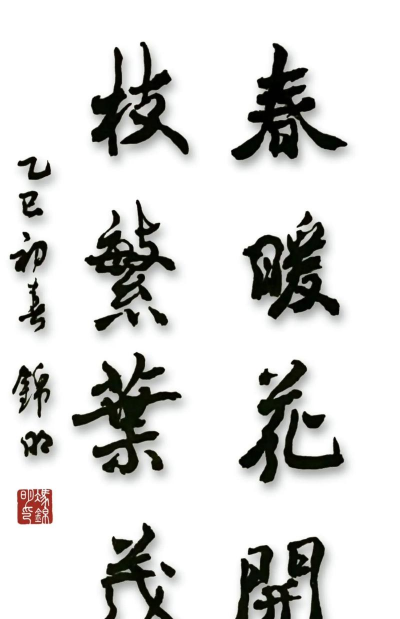 春暖花開
枝繁葉茂
乙巳初春 錦明
馮錦明印